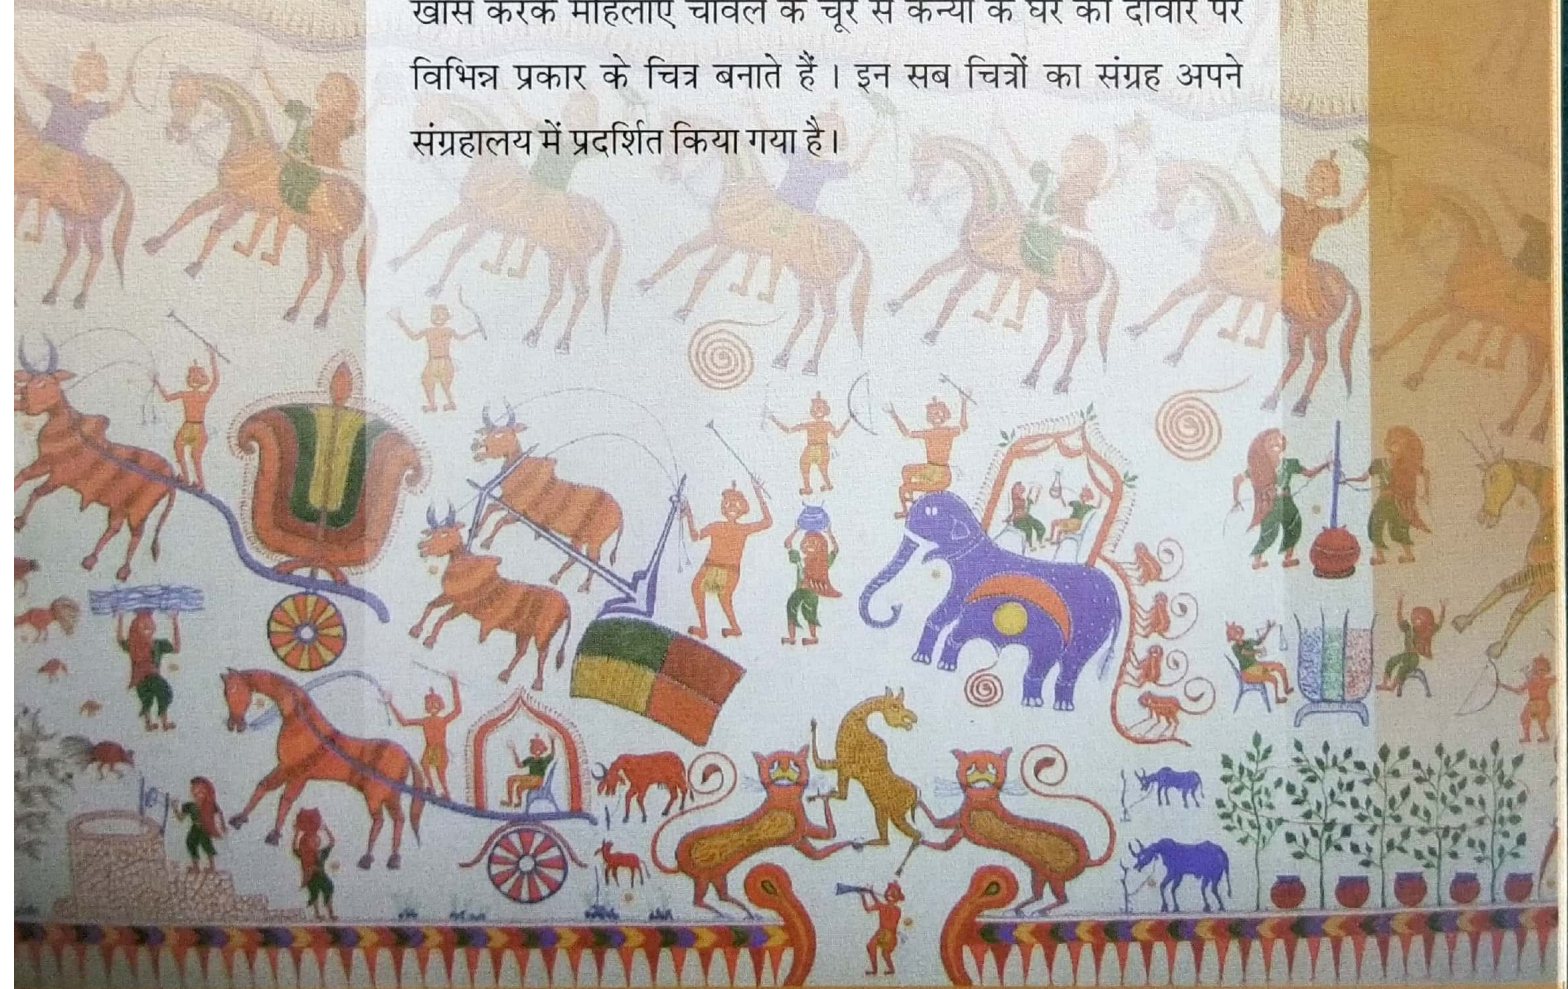 खास करके महिलाएं चावल के चूर से कन्या के घर की दीवार पर
विभिन्न प्रकार के चित्र बनाते हैं । इन सब चित्रों का संग्रह अपने
संग्रहालय में प्रदर्शित किया गया है।